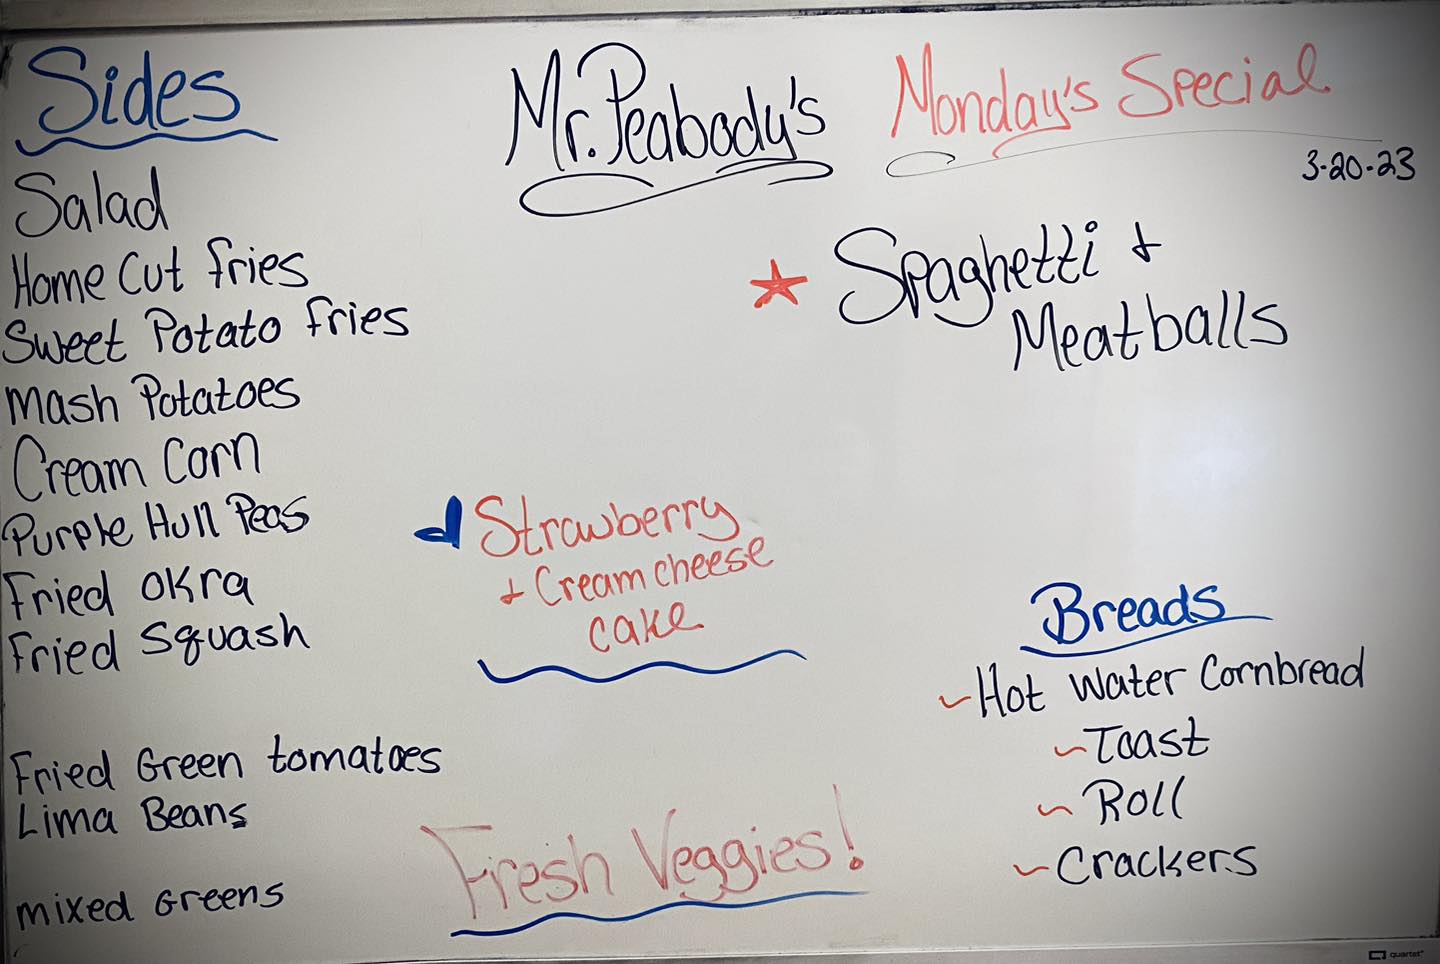 Sides
Salad
Home Cut fries
Sweet Potato fries
Mash Potatoes
Cream Corn
Purple Hull Peas
Fried okra
Fried Squash
Fried Green tomatoes
Lima Beans
mixed Greens
Mr. Peabody's
Monday's Special
3-20-23
Spaghetti +
Meatballs
Strawberry
+ Cream cheese
cake
Fresh Veggies!
Breads
Hot Water Cornbread
Toast
Roll
Crackers
quartet